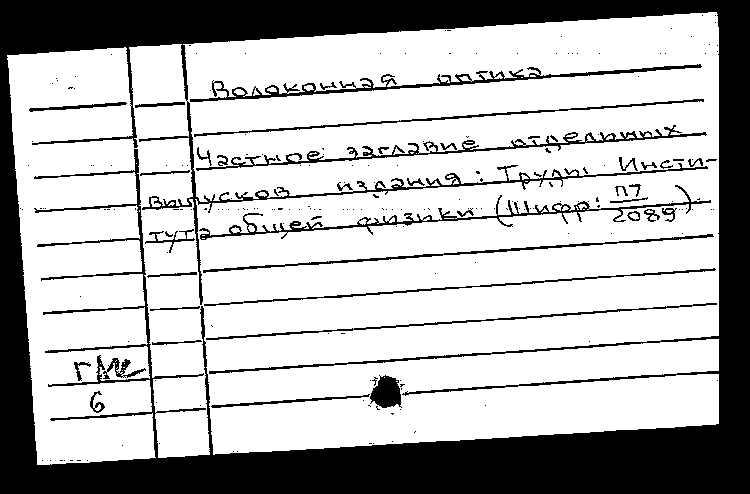 Волоконная оптика
Частное заглавие отдельных
выпусков издания: Труды Инсти-
тута общей физики (Шифр: П7/2089).
6